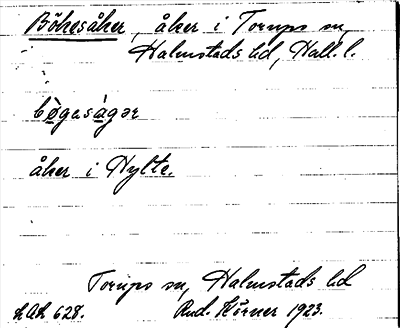 Bökesåker, åker i Torups sn,
Halmstads hd, Hall. l.
bö̀gasàgər
åker i Hylte.
Torups sn, Halmstads hd
LAL 628. Rud. Körner 1923.